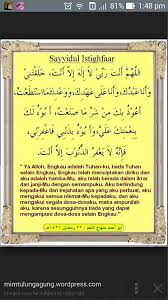 1:48 pm
Sayyidul Istighfaar
اللَّهُمَّ أَنْتَ رَبِّيْ لَا إِلَهَ إِلَّا أَنْتَ، خَلَقْتَنِيْ
وَأَنَا عَبْدُكَ، وَأَنَا عَلَى عَهْدِكَ وَوَعْدِكَ مَا اسْتَطَعْتُ،
أَعُوْذُ بِكَ مِنْ شَرِّ مَا صَنَعْتُ، أَبُوْءُ لَكَ
بِنِعْمَتِكَ عَلَيَّ، وَأَبُوْءُ بِذَنْبِيْ فَاغْفِرْ لِيْ،
فَإِنَّهُ لَا يَغْفِرُ الذُّنُوْبَ إِلَّا أَنْتَ
" Ya Alloh, Engkau adalah Tuhan-ku, tiada Tuhan
selain Engkau, Engkau telah menciptakan diriku dan
aku adalah hamba-Mu, aku telah berada dalam ikrar
dan janji-Mu dengan semampuku. Aku berlindung
kepada-Mu dari kejahatan apa yang aku perbuat, aku
mengakui semua nikmat-Mu dan aku
mengakui dosa-dosaku, maka ampunilah
aku, karena sesungguhnya tiada yang dapat
mengampuni dosa-dosa selain Engkau "
mimtulungagung.wordpress.com